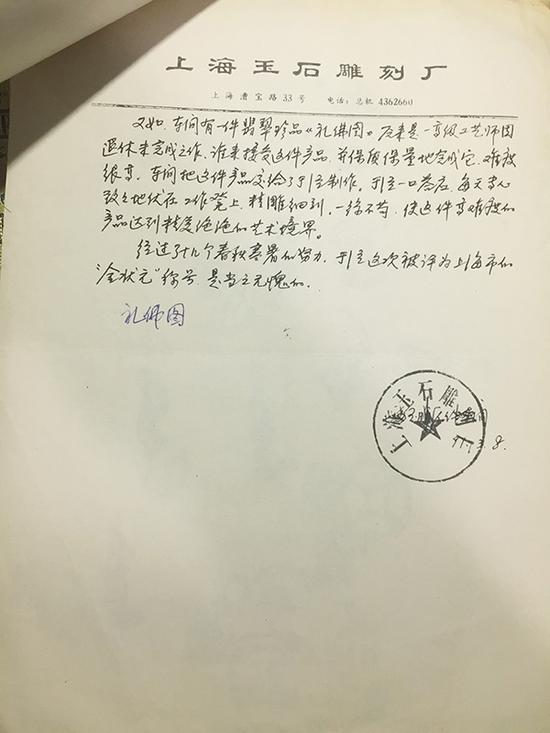 上海玉石雕刻厂
上海漕宝路33号 电话：总机 4362660
又如，车间有一件翡翠珍品《礼佛图》原来是一高级工艺师因
退休未完成之作，谁来接受这件产品，并保质保量地完成它，难度
很高，车间把这件产品交给了于泾制作。于泾一口答应，每天专心
致之地伏在工作凳上，精雕细刻，一丝不苟，使这件高难度的
产品达到精美绝伦的艺术境界。
经过了十几个春秋寒暑的努力，于泾这次被评为上海市的
“金状元”称号，是当之无愧的。
礼佛图
上海玉石雕
8.